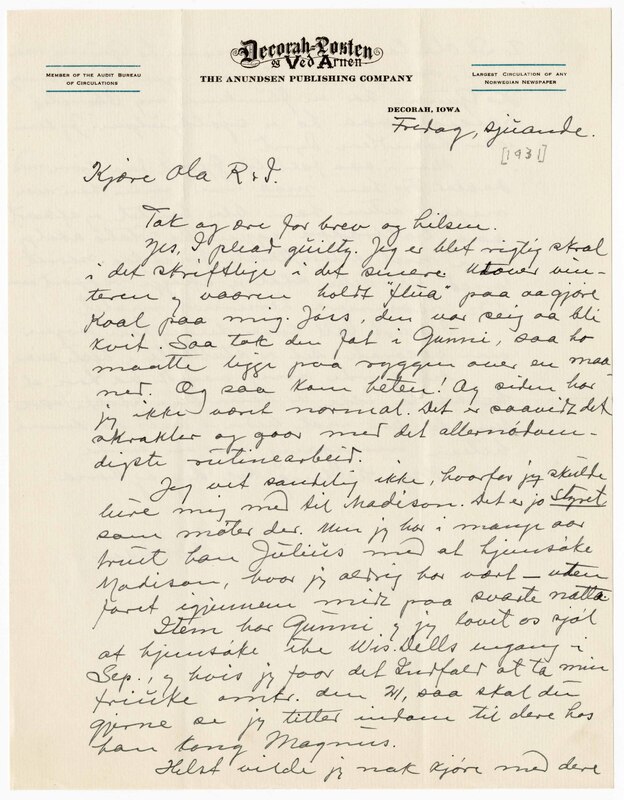 Decorah-Posten
og Ved Arnen
THE ANUNDSEN PUBLISHING COMPANY
MEMBER OF THE AUDIT BUREAU
OF CIRCULATIONS
LARGEST CIRCULATION OF ANY
NORWEGIAN NEWSPAPER
DECORAH, IOWA
Fredag, sjuande.
[1931]
Kjære Ola R & I.
Tak og ære for brev og hilsen.
Yes, I plead guilty. Jeg er blet rigtig skral
i det skriftlige i det senere. Utover vin-
teren og vaaren holdt "flua" paa aa gjøre
Kaal paa mig. Jøss, den var seig aa bli
kvit. Saa tok den fat i Gunni, saa ho
maatte ligge paa ryggen over en maa
ned. Og saa kom heten! Og siden har
jeg ikke vært normal. Det er saavidt det
skrakler og gaar med det allernødven-
digste rutinearbeid.
Jeg vet sandelig ikke, hvorfor jeg skulde
være mig med til Madison. Det er jo Styret
som møter der. Men jeg har i mange aar
truet han Julius med at hjemsøke
Madison, hvor jeg aldrig har vært – uten
faret igjennem midt paa svarte natta.
Item har Gunni og jeg lovet os sjøl
at hjemsøke the Wis. Dells engang i
Sep., og hvis jeg faar det Indfald at ta min
omkr. den 21, saa skal du
gjerne se jeg titter indom til dere hos
han kong Magnus.
Helst vilde jeg nok kjøre med dere